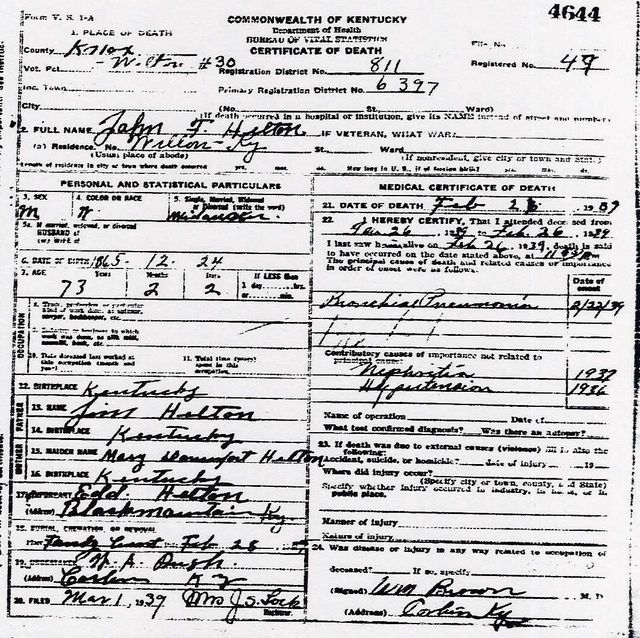 Form V. S. 1-A
COMMONWEALTH OF KENTUCKY
4644
Department of Health
BUREAU OF VITAL STATISTICS
CERTIFICATE OF DEATH
1. PLACE OF DEATH
County Knox
File No.
Vot. Pct. Wilton #30
Registration District No. 811
Registered No. 49
Inc. Town
Primary Registration District No. 6397
City (No. St. Ward)
(If death occurred in a hospital or institution, give its NAME instead of street and number)
2. FULL NAME John F. Helton IF VETERAN, WHAT WAR
(a) Residence. No. Wilton Ky St. Ward
(Usual place of abode) (If nonresident, give city or town and State)
Length of residence in city or town where death occurred yrs. mos. How long in U. S., if of foreign birth? yrs.
PERSONAL AND STATISTICAL PARTICULARS
3. SEX 4. COLOR OR RACE 5. Single, Married, Widowed or Divorced (write the word)
M W
5a. If married, widowed, or divorced
HUSBAND of
(or) WIFE of
6. DATE OF BIRTH 1865-12-24
7. AGE Years Months Days If LESS than
73 2 2 1 day hrs. or min.
OCCUPATION
10. Date deceased last worked at this occupation (month and year)
11. Total time (years) spent in this occupation
12. BIRTHPLACE Kentucky
FATHER
13. NAME Jim Helton
14. BIRTHPLACE Kentucky
MOTHER
15. MAIDEN NAME Mary Helton
16. BIRTHPLACE Kentucky
17. INFORMANT Edd Helton
(Address) Blackmountain Ky.
18. BURIAL, CREMATION, OR REMOVAL
Place Feb 28
19. UNDERTAKER
(Address) Corbin Ky
20. FILED Mar 1, 1939 Mrs J. S. Lock
Registrar
MEDICAL CERTIFICATE OF DEATH
21. DATE OF DEATH Feb 1939
22. I HEREBY CERTIFY, That I attended deceased from
Jan 26 1939 to Feb. 26 1939
I last saw him alive on Feb 26 1939, death is said
to have occurred on the date stated above, at
The principal cause of death and related causes of importance
in order of onset were as follows:
Date of onset
Bronchial Pneumonia 2/22/39
Contributory causes of importance not related to
principal cause:
Nephritis 1937
Hypertension 1936
Name of operation Date of
What test confirmed diagnosis? Was there an autopsy?
23. If death was due to external causes (violence) fill in also the
following:
Accident, suicide, or homicide? date of injury 19
Where did injury occur?
(Specify city or town, county, and State)
Specify whether injury occurred in industry, in home, or in
public place.
Manner of injury
Nature of injury
24. Was disease or injury in any way related to occupation of
deceased? If so, specify
(Signed) Wm Brown M. D.
(Address) Corbin Ky